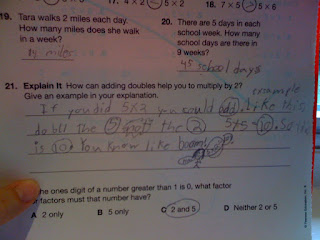 17. 4 × 2 5 × 2 18. 7 × 5 5 × 6
19. Tara walks 2 miles each day.
How many miles does she walk
in a week?
14 miles
20. There are 5 days in each
school week. How many
school days are there in
9 weeks?
45 school days
21. Explain It How can adding doubles help you to multiply by 2?
Give an example in your explanation.
example
If you did 5×2 you would like this,
do the 5 the 2 5+5=10. So it
is 10 You know like
he ones digit of a number greater than 1 is 0, what factor
r factors must that number have?
A 2 only B 5 only C 2 and 5 D Neither 2 or 5